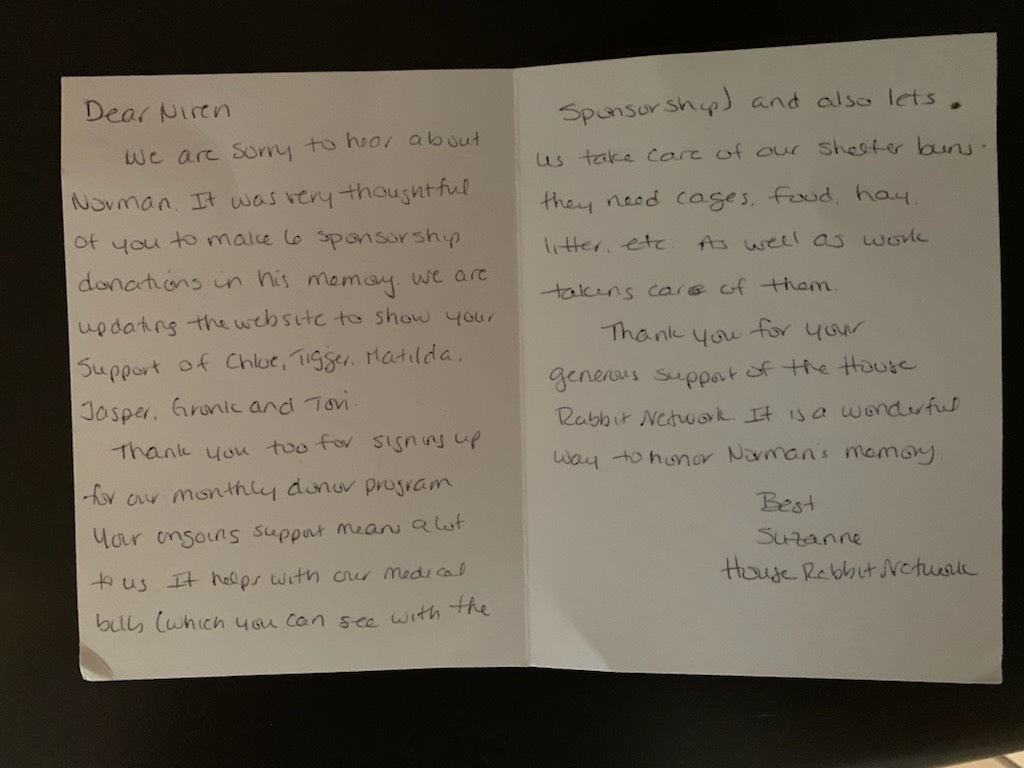 Dear Niren
We are sorry to hear about
Norman. It was very thoughtful
of you to make 6 sponsorship
donations in his memory. We are
updating the website to show your
Support of Chloe, Tigger, Matilda,
Jasper, Gronk and Tori.
Thank you too for signing up
for our monthly donor program
Your ongoing support means a lot
to us. It helps with our medical
bills (which you can see with the
Sponsorship) and also lets
us take care of our shelter buns.
they need cages, food, hay,
litter, etc. As well as work
taking care of them.
Thank you for your
generous support of the House
Rabbit Network. It is a wonderful
way to honor Norman's memory.
Best
Suzanne
House Rabbit Network